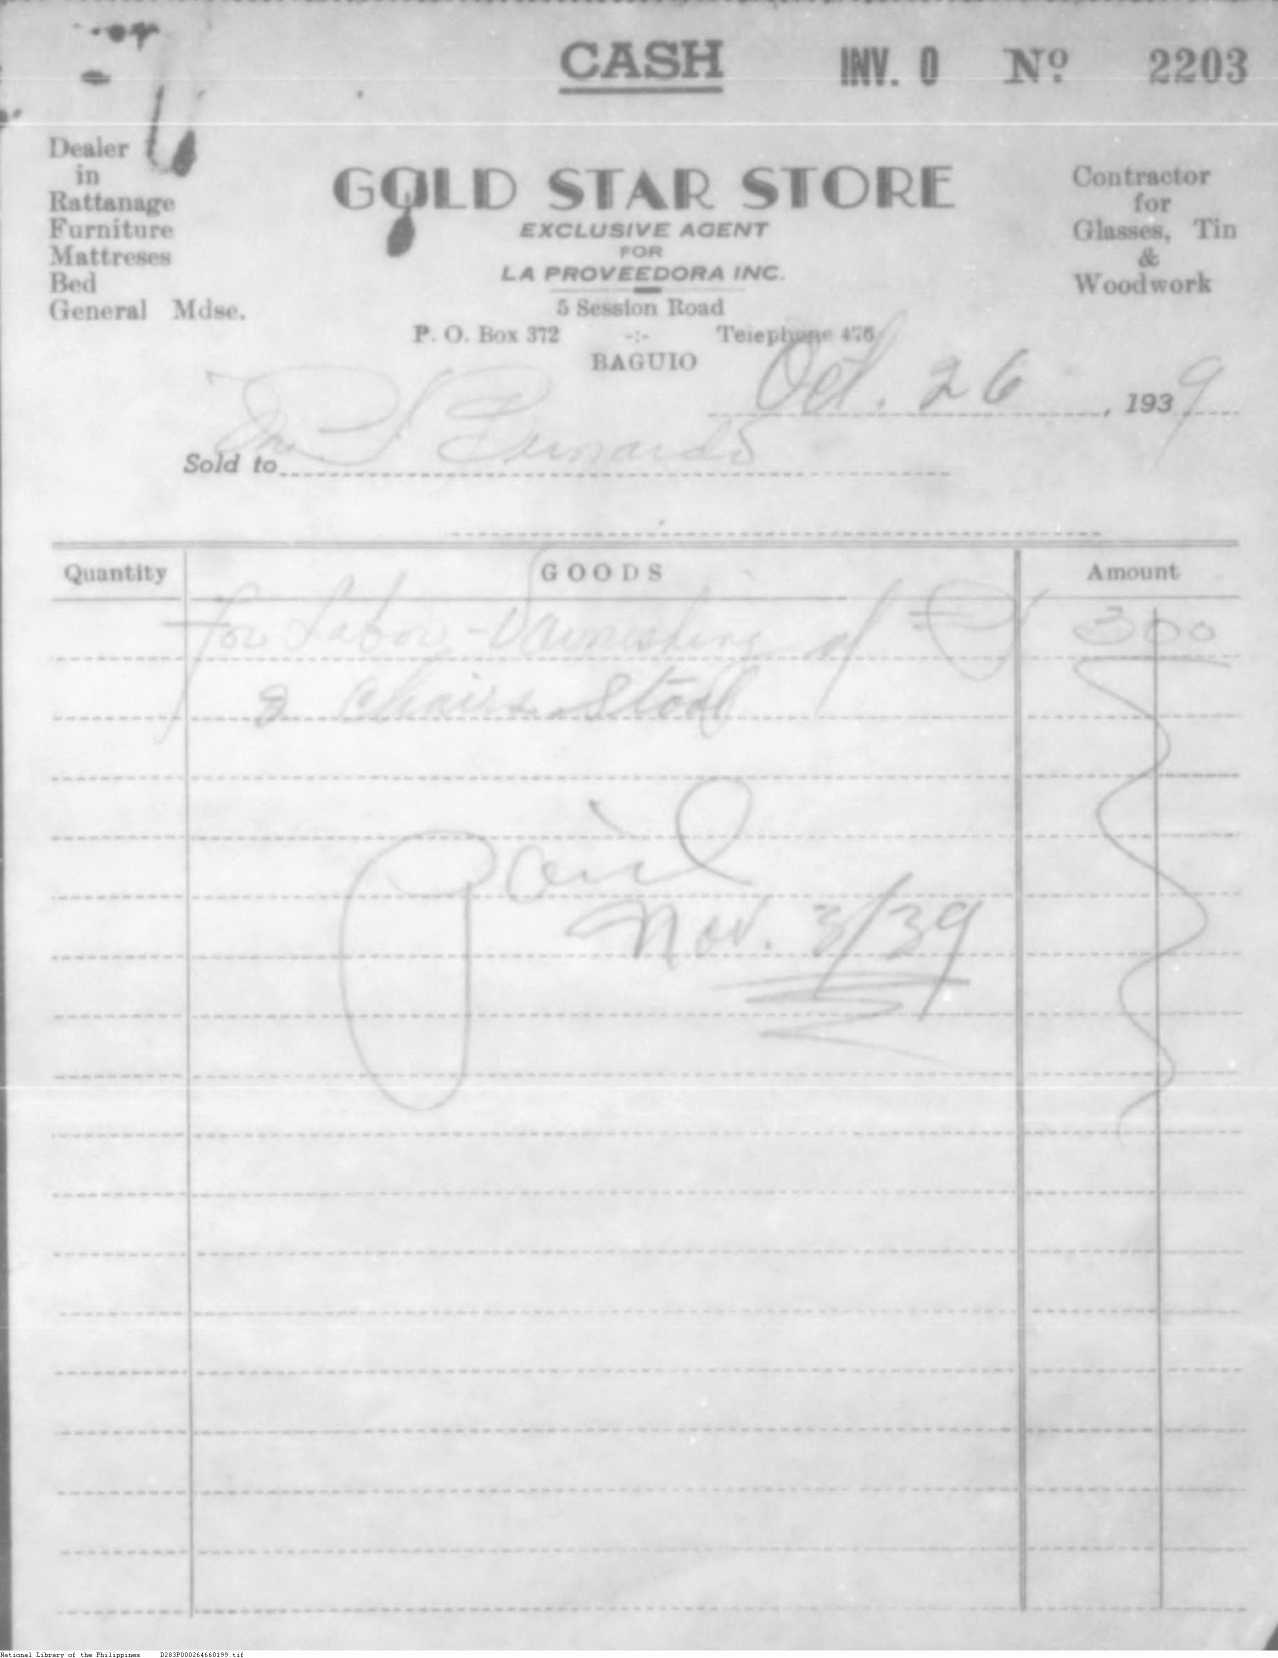 CASH INV. O No. 2203
Dealer
in
Rattanage
Furniture
Mattreses
Bed
General Mdse.
GOLD STAR STORE
EXCLUSIVE AGENT
FOR
LA PROVEEDORA INC.
5 Session Road
P. O. Box 372 -:- Telephone 476
BAGUIO
Contractor
for
Glasses, Tin
&
Woodwork
Oct. 26, 1939
Sold to Bernardo
Quantity GOODS Amount
for Labor - Varnishing of ₱ 3 00
2 chairs Stool
Paid
Nov. 3/39
National Library of the Philippines D283P000264660199.tif